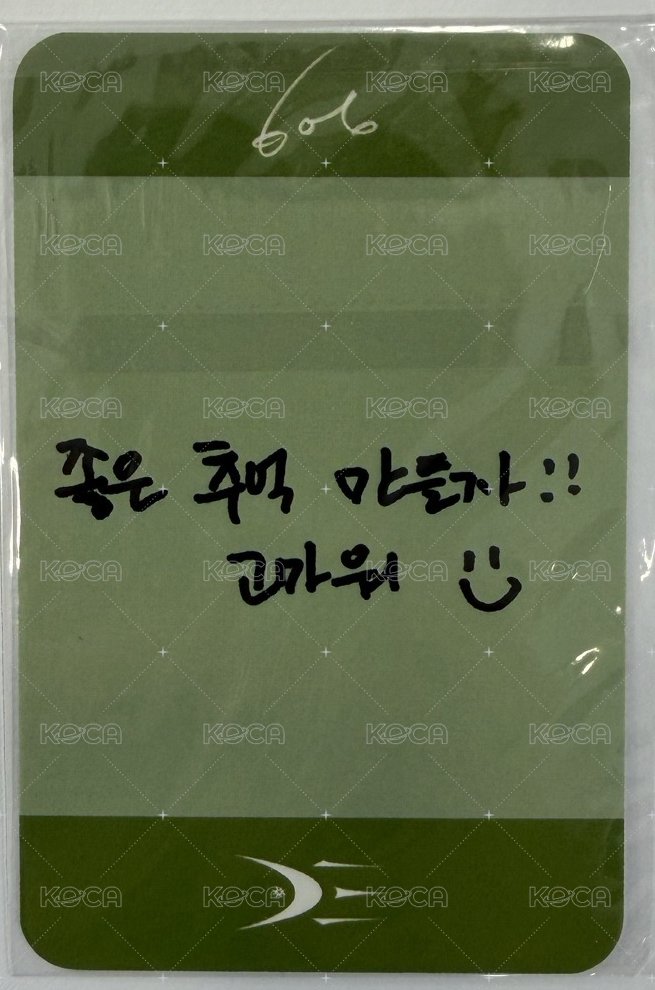 606
좋은 추억 만들자!!
고마워
KOCA KOCA KOCA KOCA
KOCA KOCA KOCA KOCA
KOCA KOCA KOCA KOCA
KOCA KOCA KOCA KOCA
KOCA KOCA KOCA KOCA
KOCA KOCA KOCA KOCA